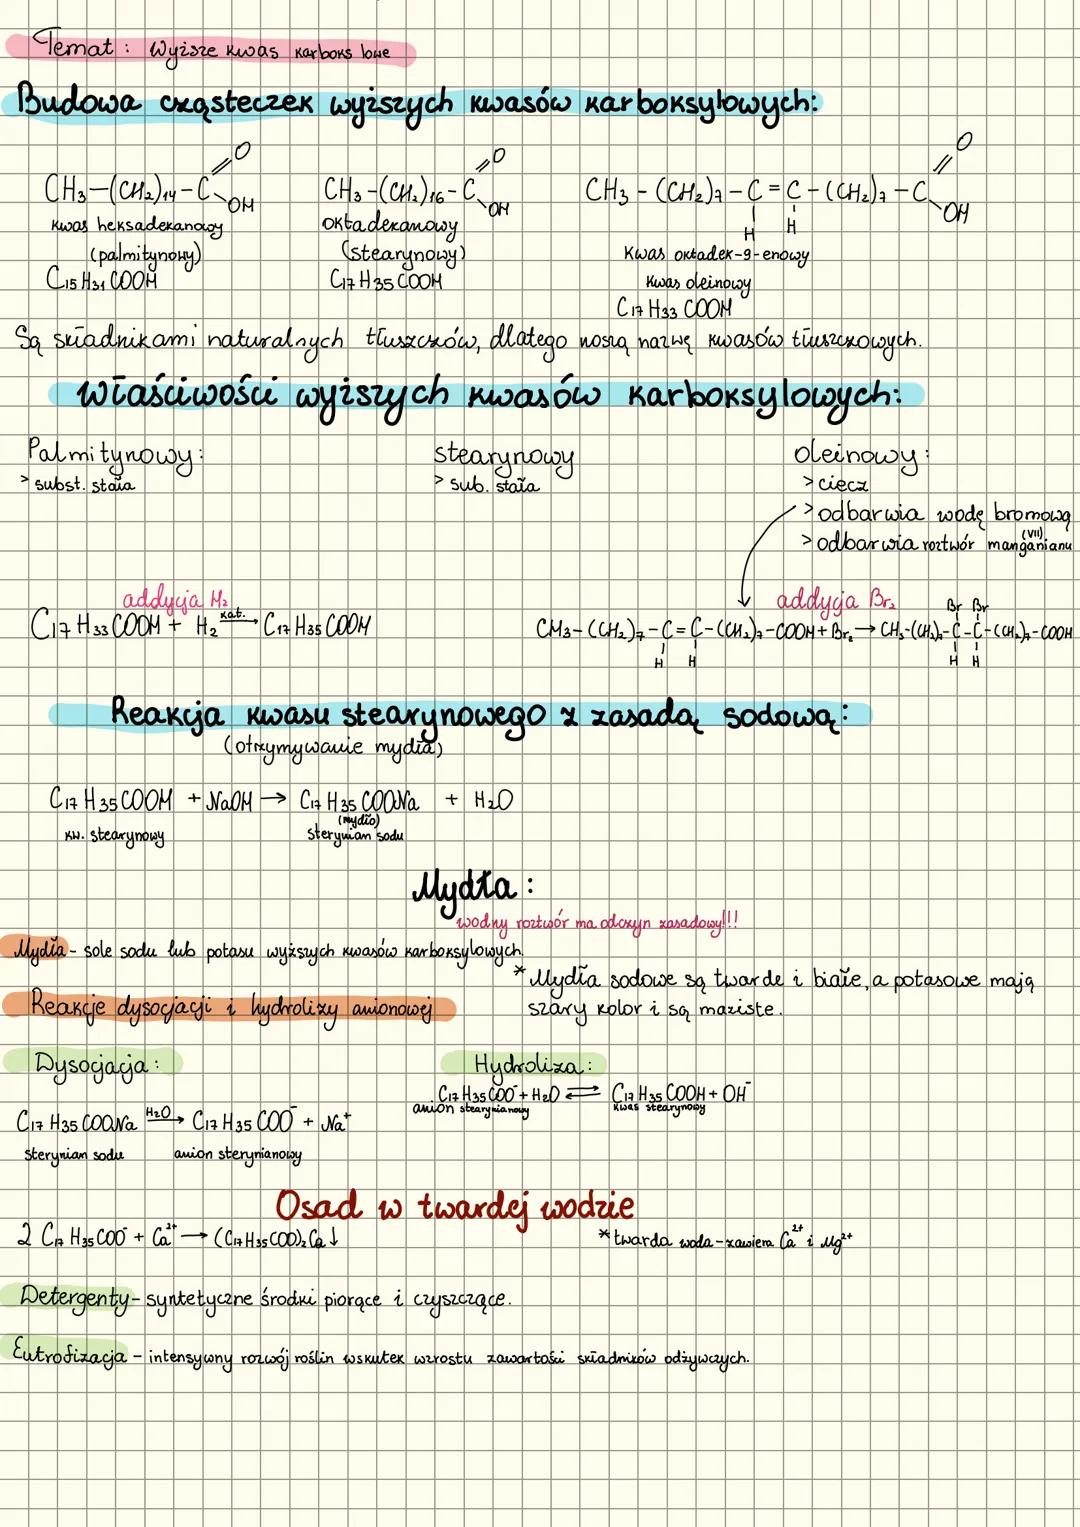 Temat: Wyższe kwas karboks lowe
Budowa cząsteczek wyższych kwasów karboksylowych:
CH₃-(CH₂)₁₄-C=O-OH
CH₃-(CH₂)₁₆-C=O-OH
CH₃-(CH₂)₇-C=C-(CH₂)₇-C=O-OH
H H
kwas heksadekanowy
(palmitynowy)
C₁₅H₃₁COOH
oktadekanowy
(stearynowy)
C₁₇H₃₅COOH
Kwas oktadek-9-enowy
kwas oleinowy
C₁₇H₃₃COOH
Są składnikami naturalnych tłuszczów, dlatego noszą nazwę kwasów tłuszczowych.
właściwości wyższych kwasów karboksylowych:
Palmitynowy:
> subst. stała
stearynowy
> sub. stała
oleinowy:
> ciecz
> odbarwia wodę bromową
> odbarwia roztwór manganianu (VII)
addycja H₂
C₁₇H₃₃COOH + H₂ kat. → C₁₇H₃₅COOH
addycja Br₂
Br Br
CH₃-(CH₂)₇-C=C-(CH₂)₇-COOH + Br₂ → CH₃-(CH₂)₇-C-C-(CH₂)₇-COOH
H H H H
Reakcja kwasu stearynowego z zasadą sodową:
(otrzymywanie mydła)
C₁₇H₃₅COOH + NaOH → C₁₇H₃₅COONa + H₂O
(mydło)
kw. stearynowy sterynian sodu
Mydła:
wodny roztwór ma odczyn zasadowy!!!
Mydła - sole sodu lub potasu wyższych kwasów karboksylowych.
* Mydła sodowe są twarde i białe, a potasowe mają
szary kolor i są maziste.
Reakcje dysocjacji i hydrolizy anionowej
Dysocjacja:
C₁₇H₃₅COONa H₂O → C₁₇H₃₅COO⁻ + Na⁺
sterynian sodu anion sterynianowy
Hydroliza:
C₁₇H₃₅COO⁻ + H₂O ⇌ C₁₇H₃₅COOH + OH⁻
anion stearynianowy kwas stearynowy
Osad w twardej wodzie
2 C₁₇H₃₅COO⁻ + Ca²⁺ → (C₁₇H₃₅COO)₂Ca↓
* twarda woda - zawiera Ca²⁺ i Mg²⁺
Detergenty - syntetyczne środki piorące i czyszczące.
Eutrofizacja - intensywny rozwój roślin wskutek wzrostu zawartości składników odżywczych.